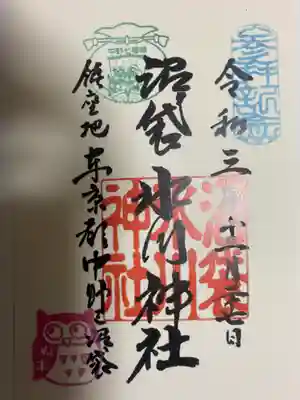 奉拝祈念
令和三年十一月二七日
沼袋氷川神社
沼袋氷川神社
中野七福神
鎮座地 東京都中野区沼袋